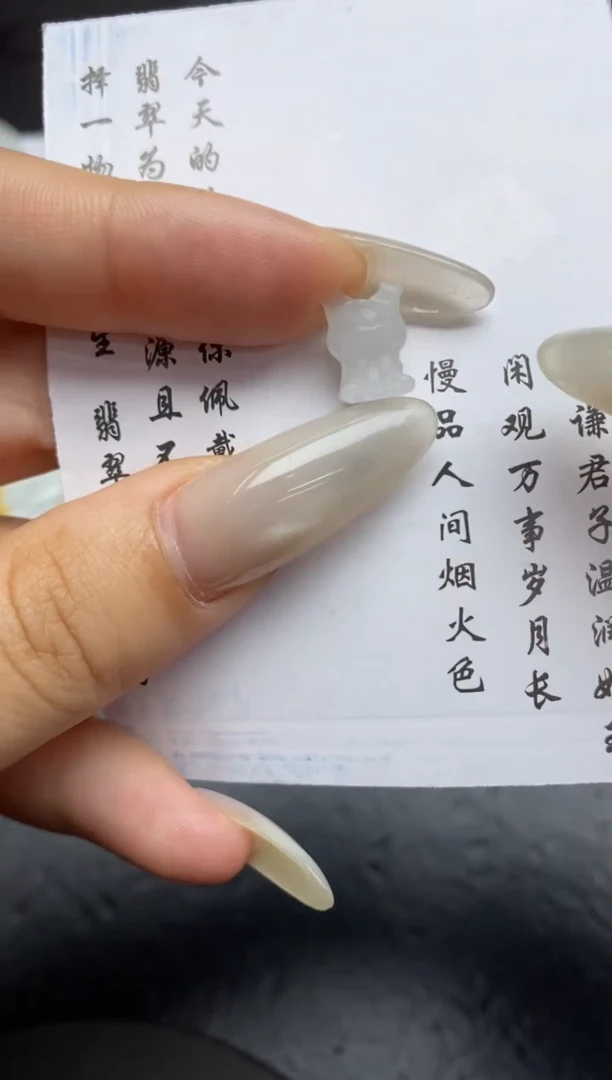 谦君子温润如
闲观万事岁月长
慢品人间烟火色
今天的 佩戴
翡翠为 源且
择一物 翡翠